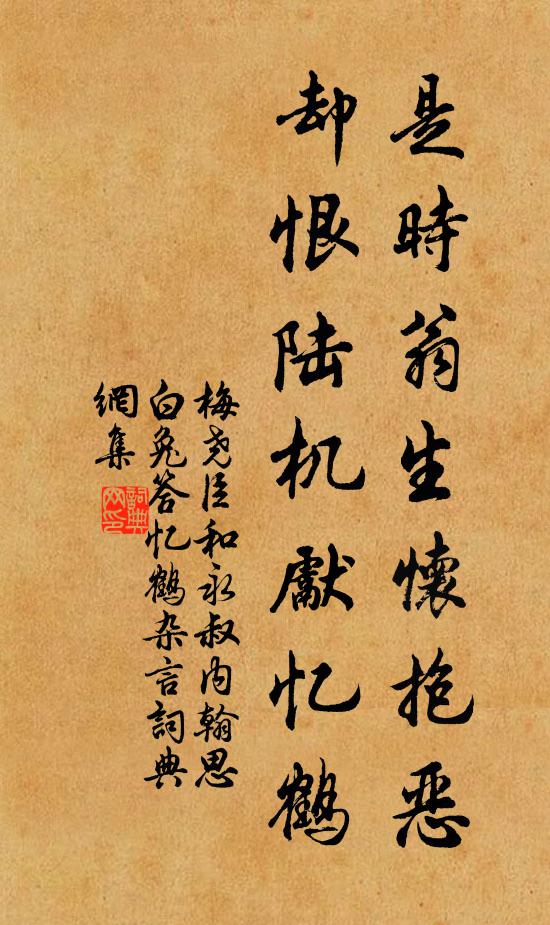 是時翁生懷抱惡
却恨陆机獻忆鶴
梅尧臣和永叔内翰思
白兔答忆鶴杂言詞典
網集
詞典
网印